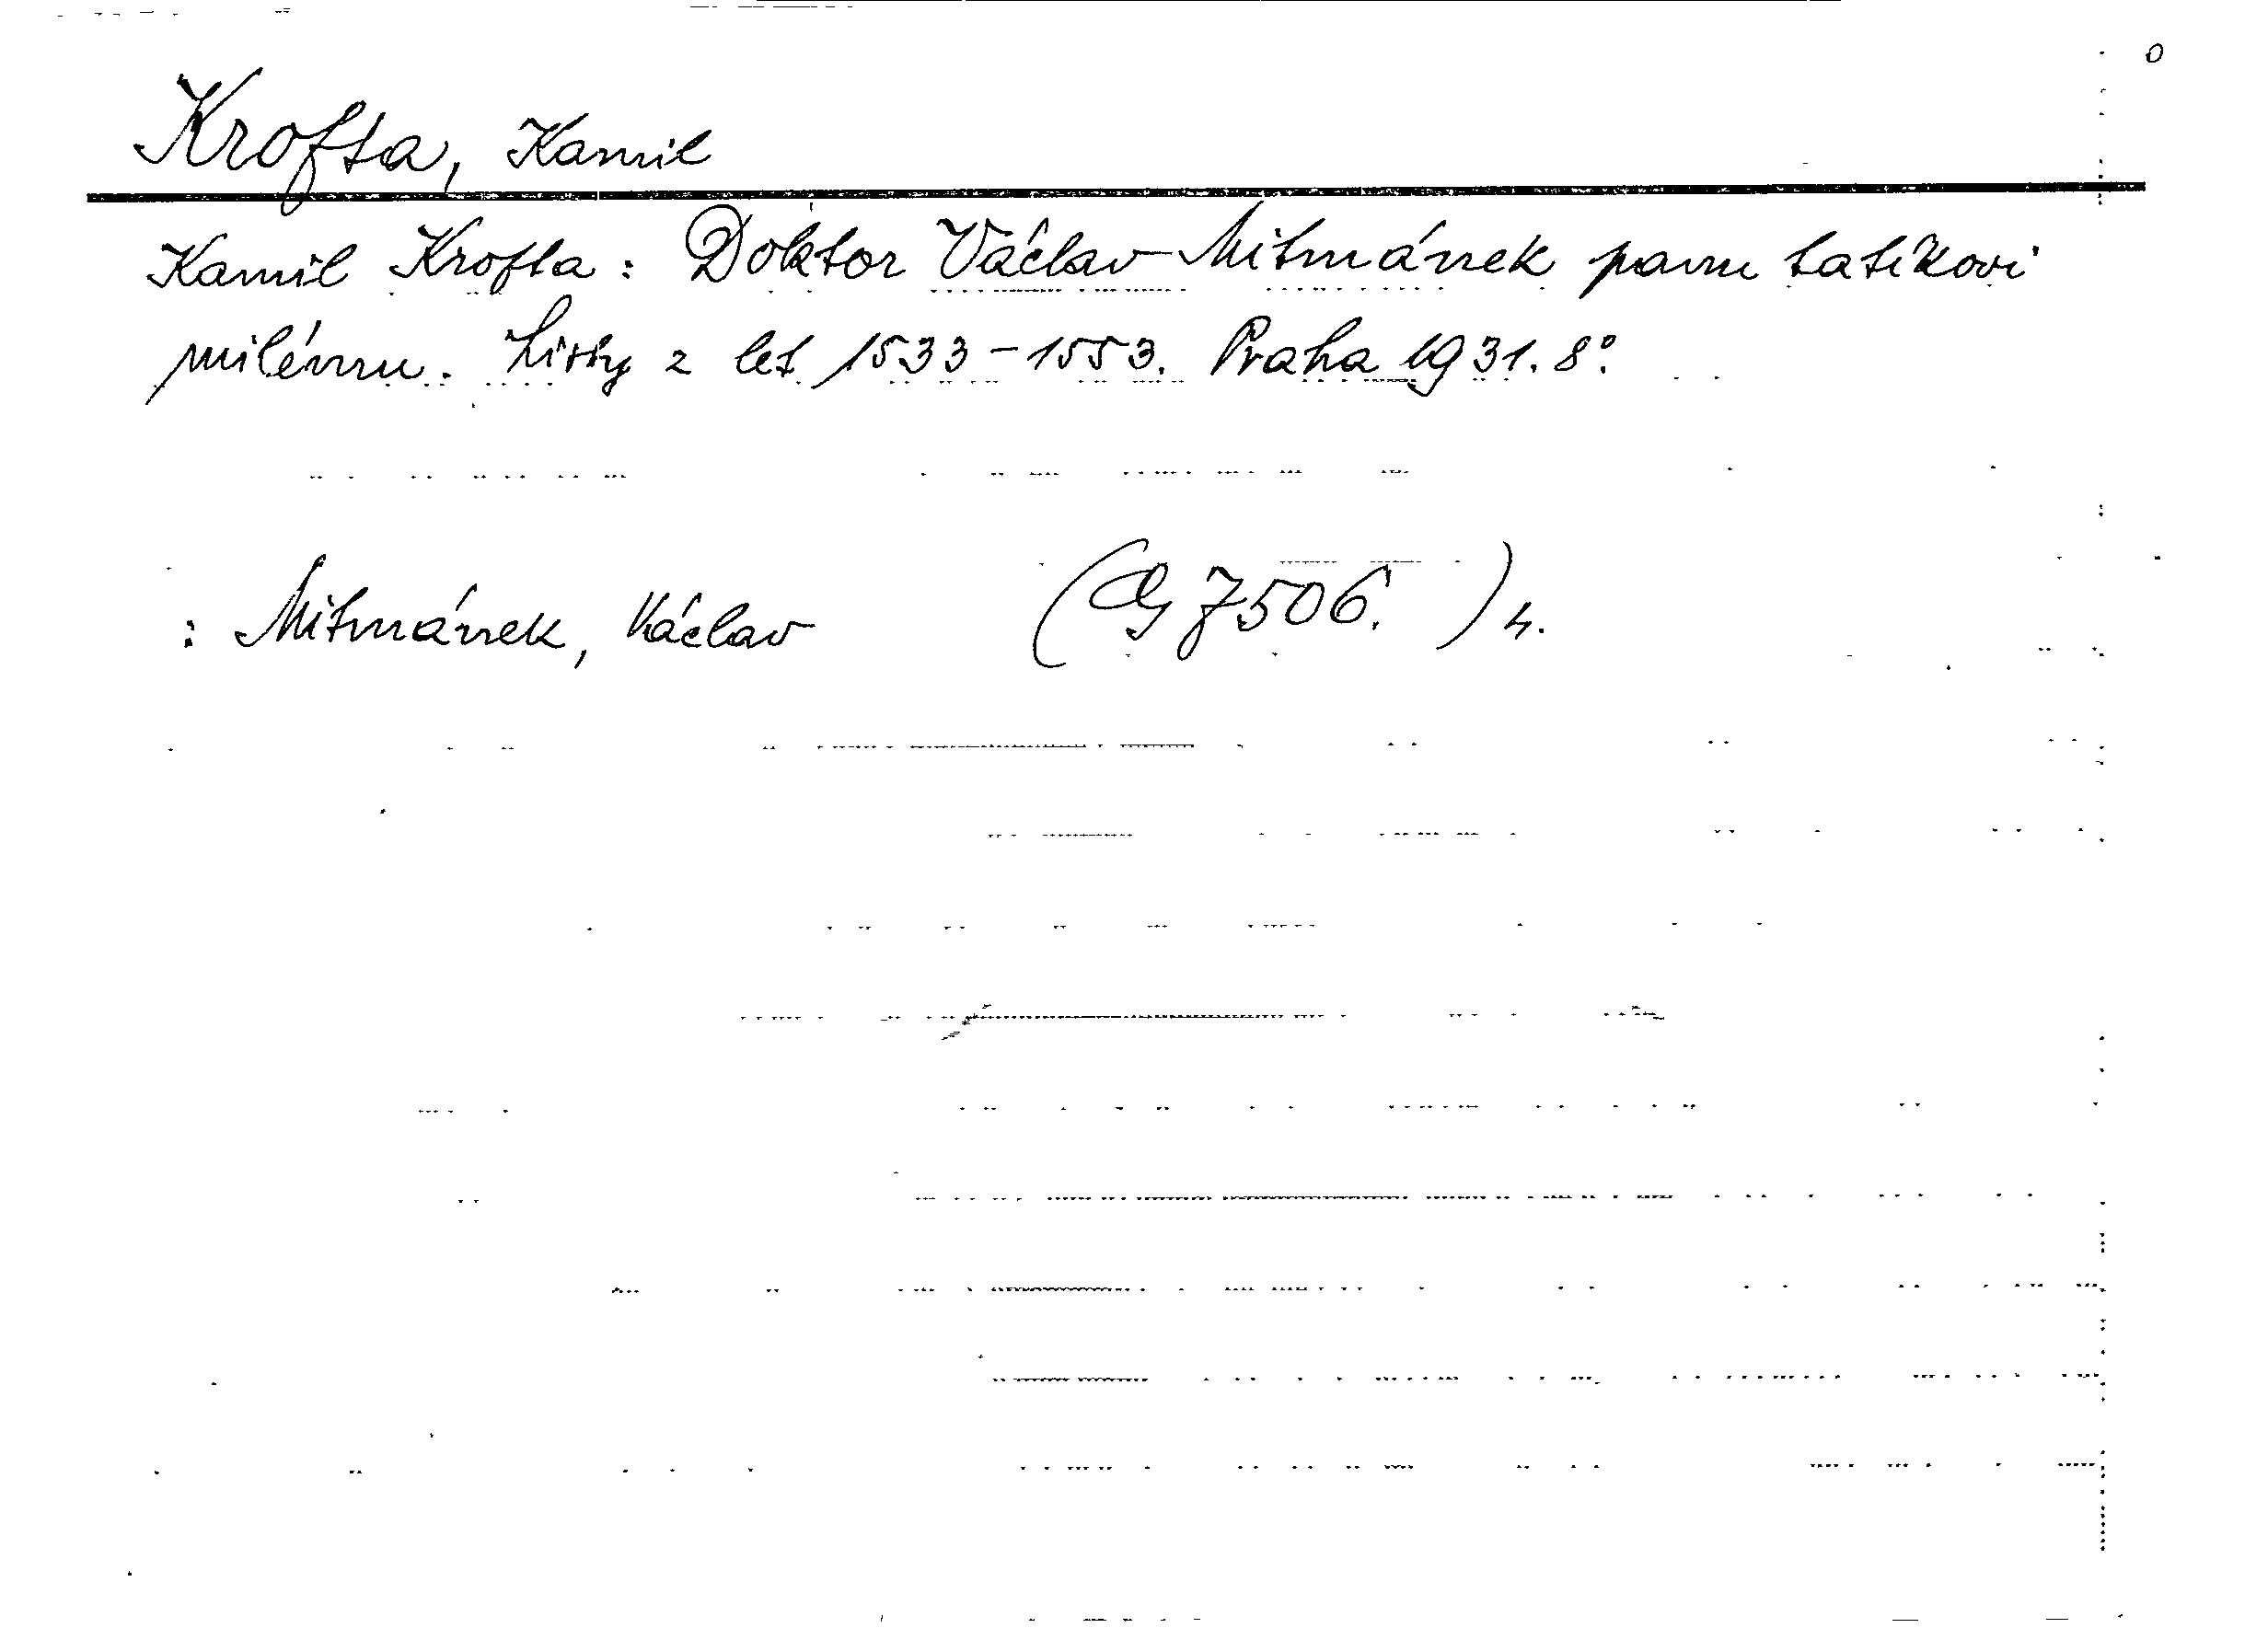 0
Krofta, Kamil
Kamil Krofta: Doktor Václav Mitmánek panu tatíkovi
milému. Listy z let 1533-1553. Praha 1931. 8°.
: Mitmánek, Václav (G 7506.) 4.